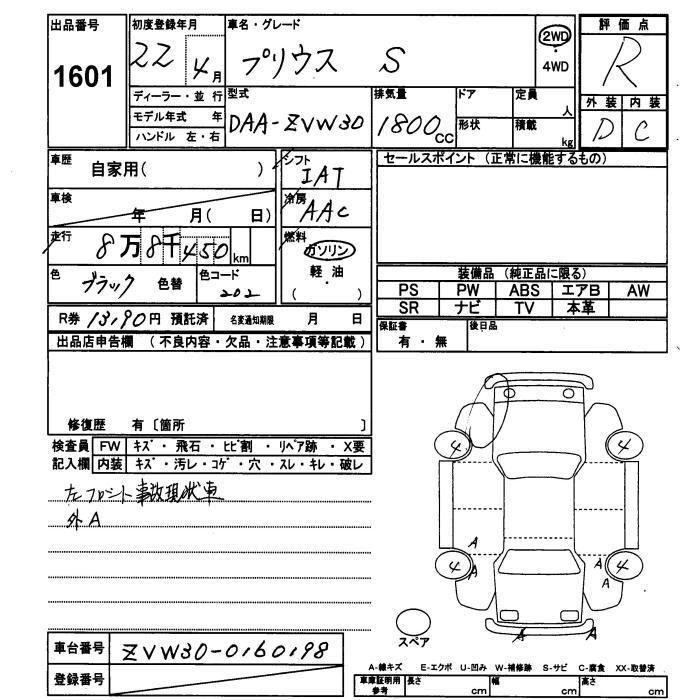 出品番号
1601
初度登録年月
22 4月
ディーラー・並行
モデル年式 年
ハンドル 左・右
車名・グレード
プリウス S
2WD
・
4WD
型式
DAA-ZVW30
排気量
1800cc
ドア
形状
定員
人
積載
kg
評価点
R
外装 内装
D C
車歴
自家用( )
車検
年 月( 日)
走行
8万8千450km
色
ブラック 色替
色コード
202
シフト
IAT
冷房
AAC
燃料
ガソリン
軽・油
( )
セールスポイント (正常に機能するもの)
装備品 (純正品に限る)
PS PW ABS エアB AW
SR ナビ TV 本革
R券 13,190円 預託済
名変通知期限 月 日
保証書
有・無
後日品
出品店申告欄 (不良内容・欠品・注意事項等記載)
修復歴 有〔箇所 〕
検査員 FW キズ・飛石・ヒビ割・リペア跡・X要
記入欄 内装 キズ・汚レ・コゲ・穴・スレ・キレ・破レ
左フロント事故現状車
外A
4 4
A
4 A A 4
A
A A
スペア
車台番号
ZVW30-0160198
登録番号
A-線キズ E-エクボ U-凹み W-補修跡 S-サビ C-腐食 XX-取替済
車庫証明用
参考
長さ cm 幅 cm 高さ cm